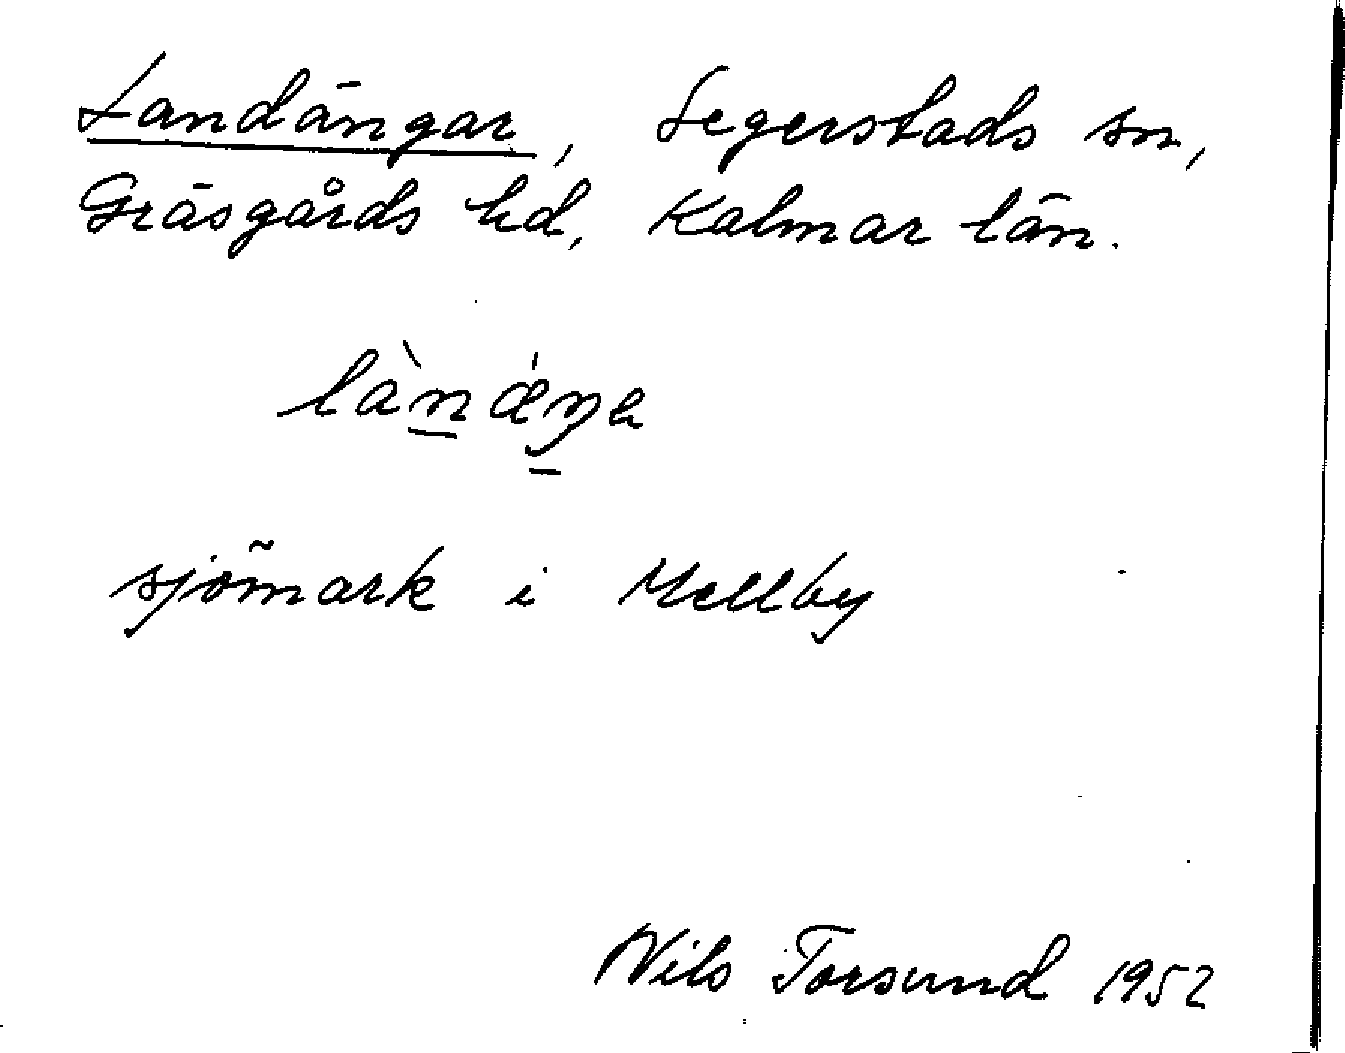 Landängar, Segerstads sn,
Gräsgårds hd, Kalmar län.
làn̠ ǽŋ̠a
sjömark i Mellby
Nils Torsund 1952